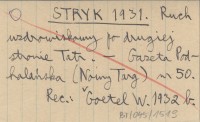 STRYK 1931. Ruch
uzdrowiskowy po drugiej
stronie Tatr. – Gazeta Pod-
halańska (Nowy Targ) nr 50.
Rec.: Goetel W. 1932 b.